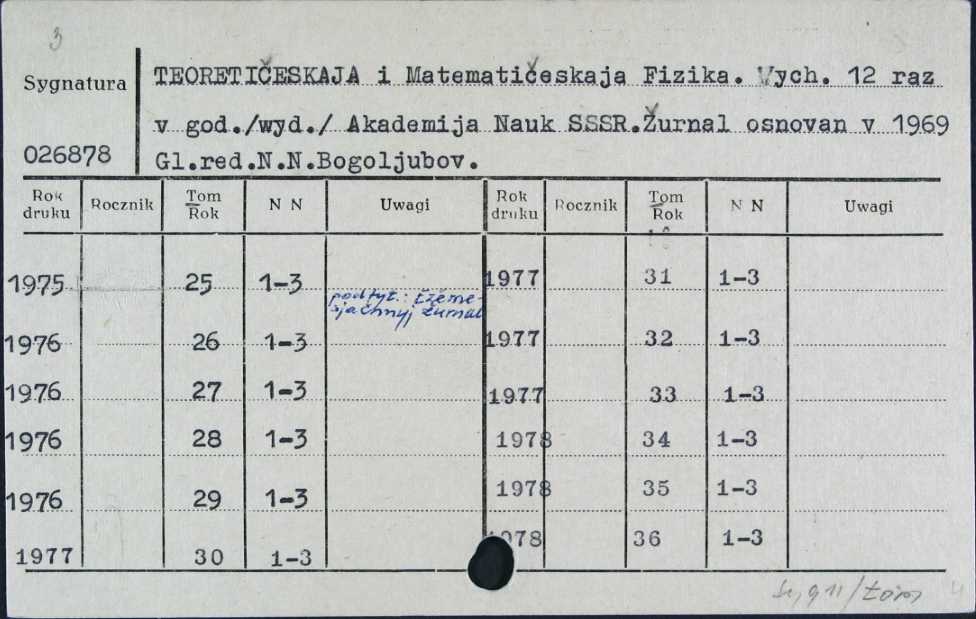 3
Sygnatura
026878
TEORETIČESKAJA i Matematičeskaja Fizika. Vych. 12 raz
v god./wyd./ Akademija Nauk SSSR.Žurnal osnovan v 1969
Gl.red.N.N.Bogoljubov.
Rok druku Rocznik Tom Rok N N Uwagi Rok druku Rocznik Tom Rok N N Uwagi
1975 25 1-3 1977 31 1-3
podtyt.: Ežeme-
sjačnyj žurnal
1976 26 1-3 1977 32 1-3
1976 27 1-3 1977 33 1-3
1976 28 1-3 1978 34 1-3
1976 29 1-3 1978 35 1-3
1977 30 1-3 1978 36 1-3